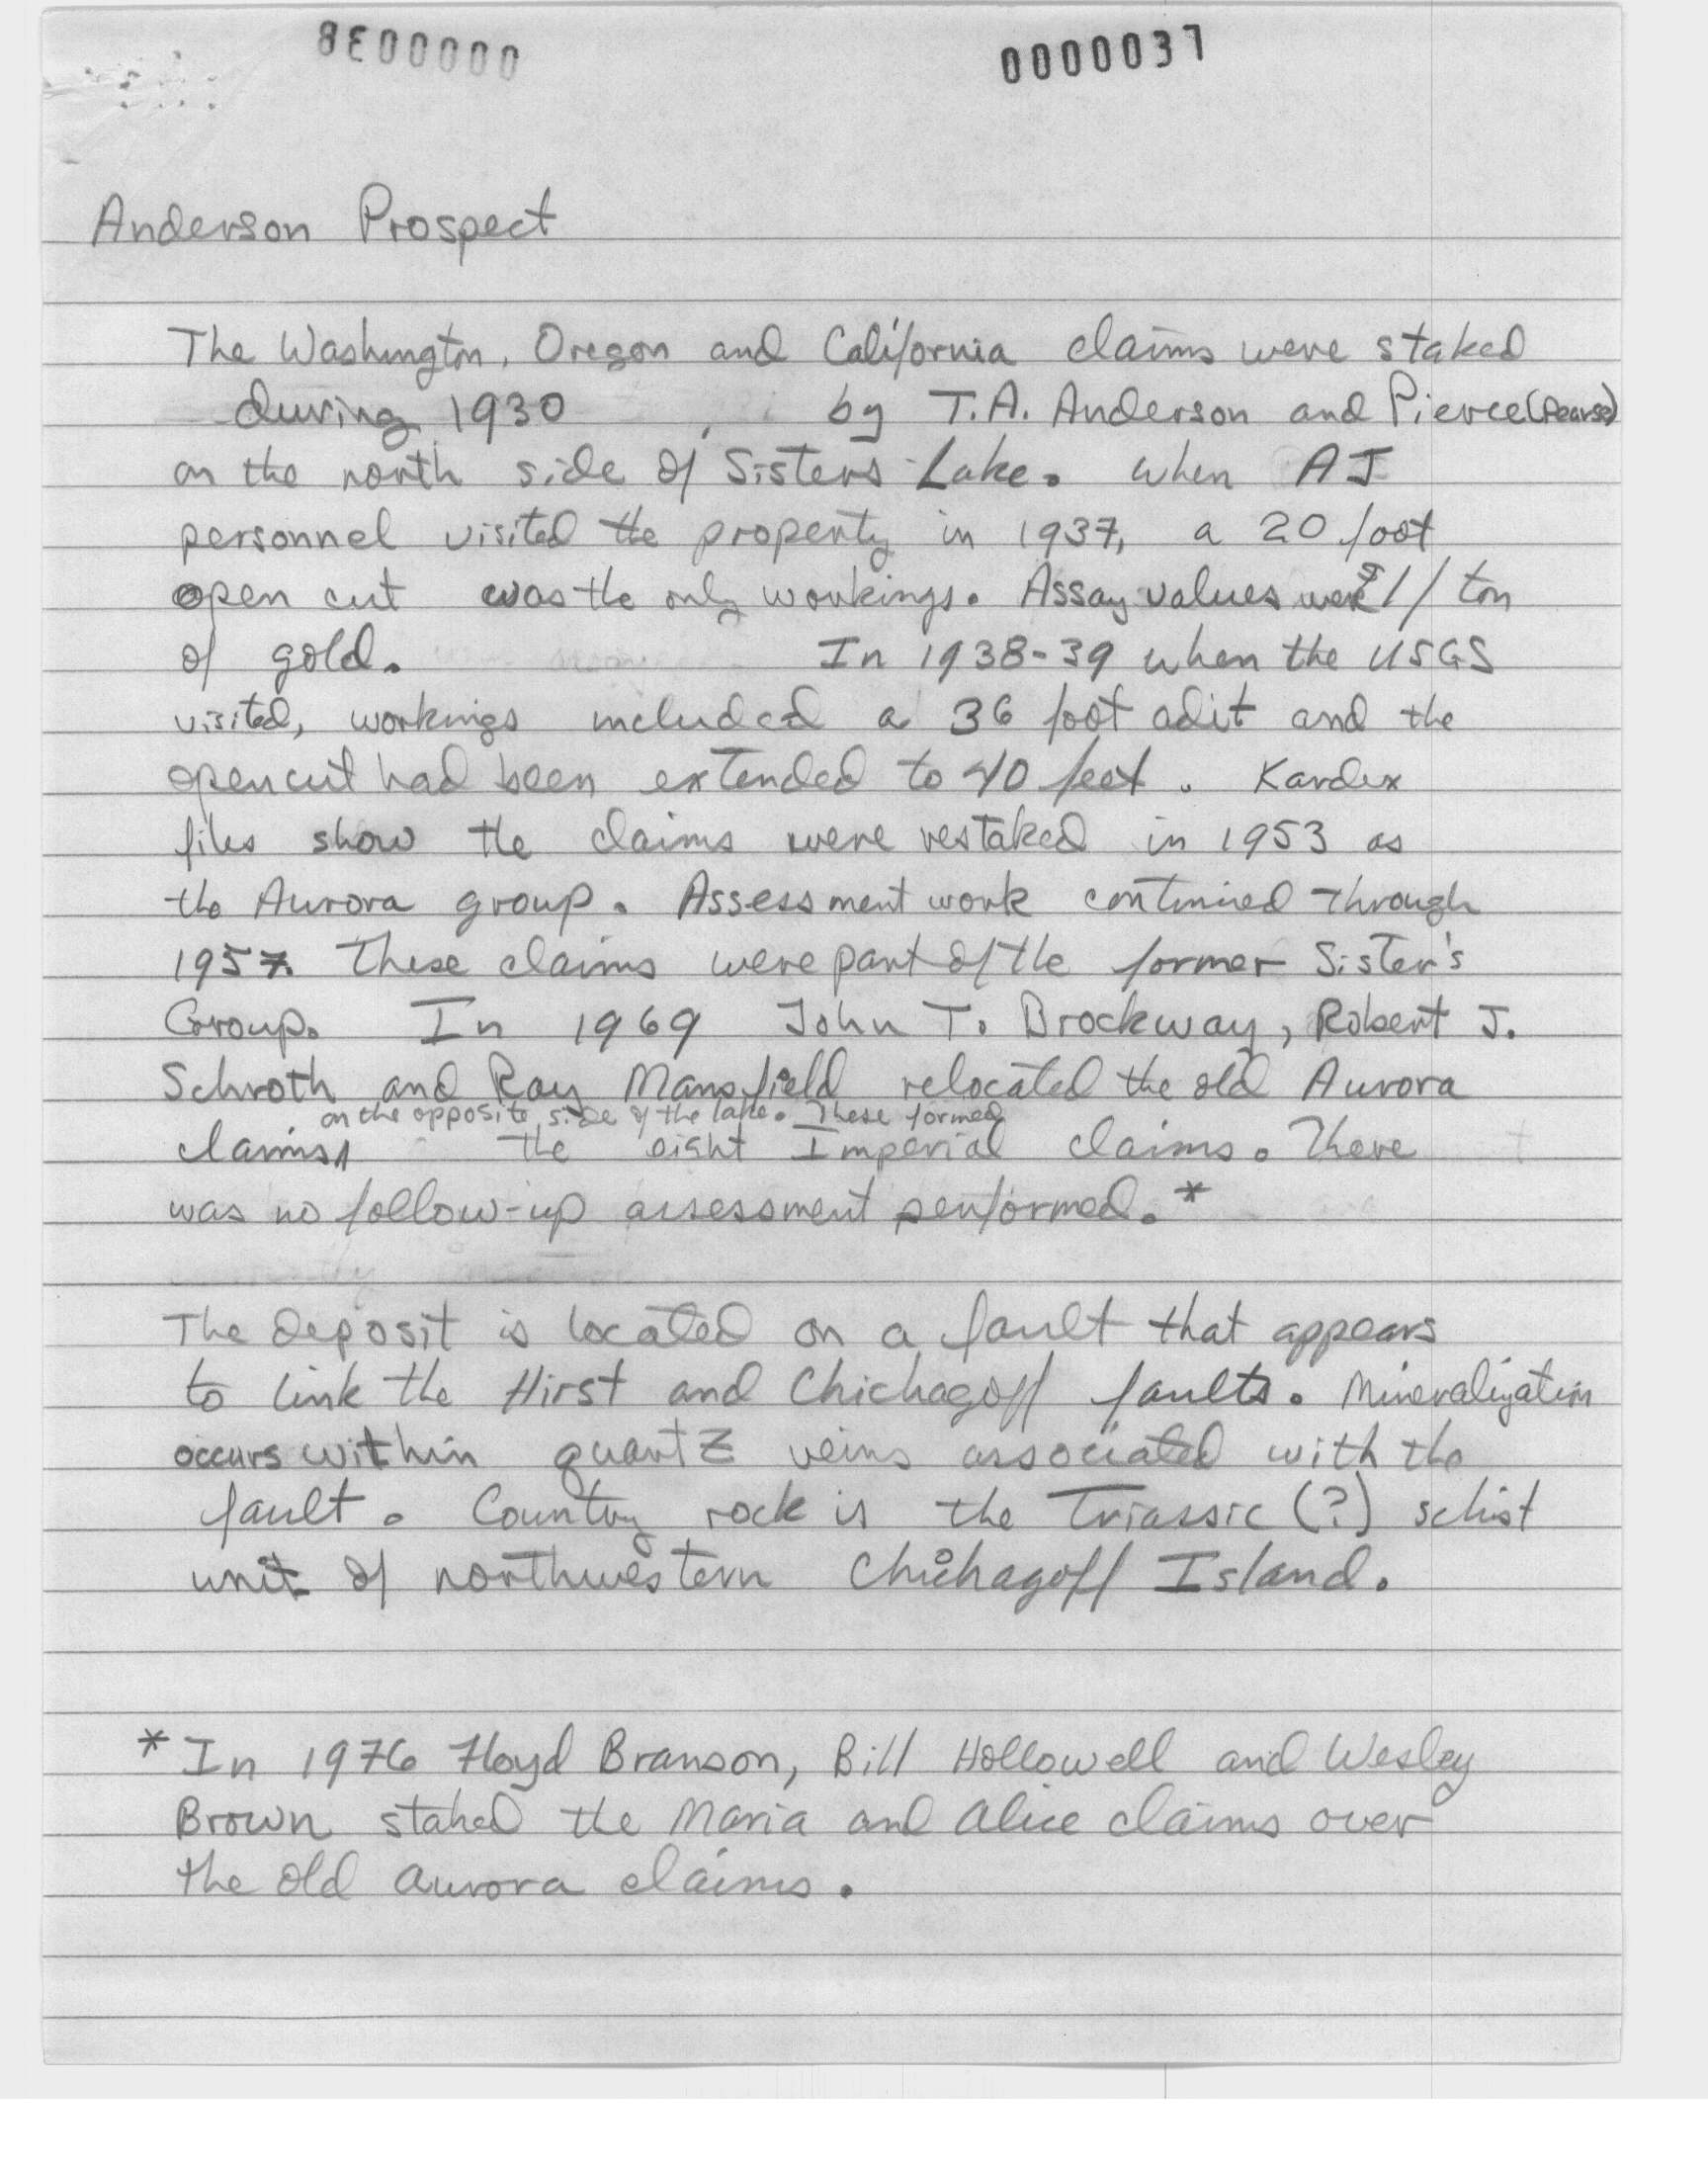 0000038 0000037
Anderson Prospect
The Washington, Oregon and California claims were staked
during 1930 by T.A. Anderson and Pierce (Pearse)
on the north side of Sisters Lake. When AJ
personnel visited the property in 1937, a 20 foot
open cut was the only workings. Assay values were $1/ton
of gold. In 1938-39 when the USGS
visited, workings included a 36 foot adit and the
opencut had been extended to 40 feet. Kardex
files show the claims were restaked in 1953 as
the Aurora group. Assessment work continued through
1957. These claims were part of the former Sister's
Group. In 1969 John T. Brockway, Robert J.
Schroth and Ray Mansfield relocated the old Aurora
on the opposite side of the lake. These formed
claims the eight Imperial claims. There
was no follow-up assessment performed.*
The deposit is located on a fault that appears
to link the Hirst and Chichagoff faults. Mineralization
occurs within quartz veins associated with the
fault. Country rock is the Triassic (?) schist
unit of northwestern Chichagoff Island.
* In 1976 Floyd Branson, Bill Hollowell and Wesley
Brown staked the Maria and Alice claims over
the old Aurora claims.